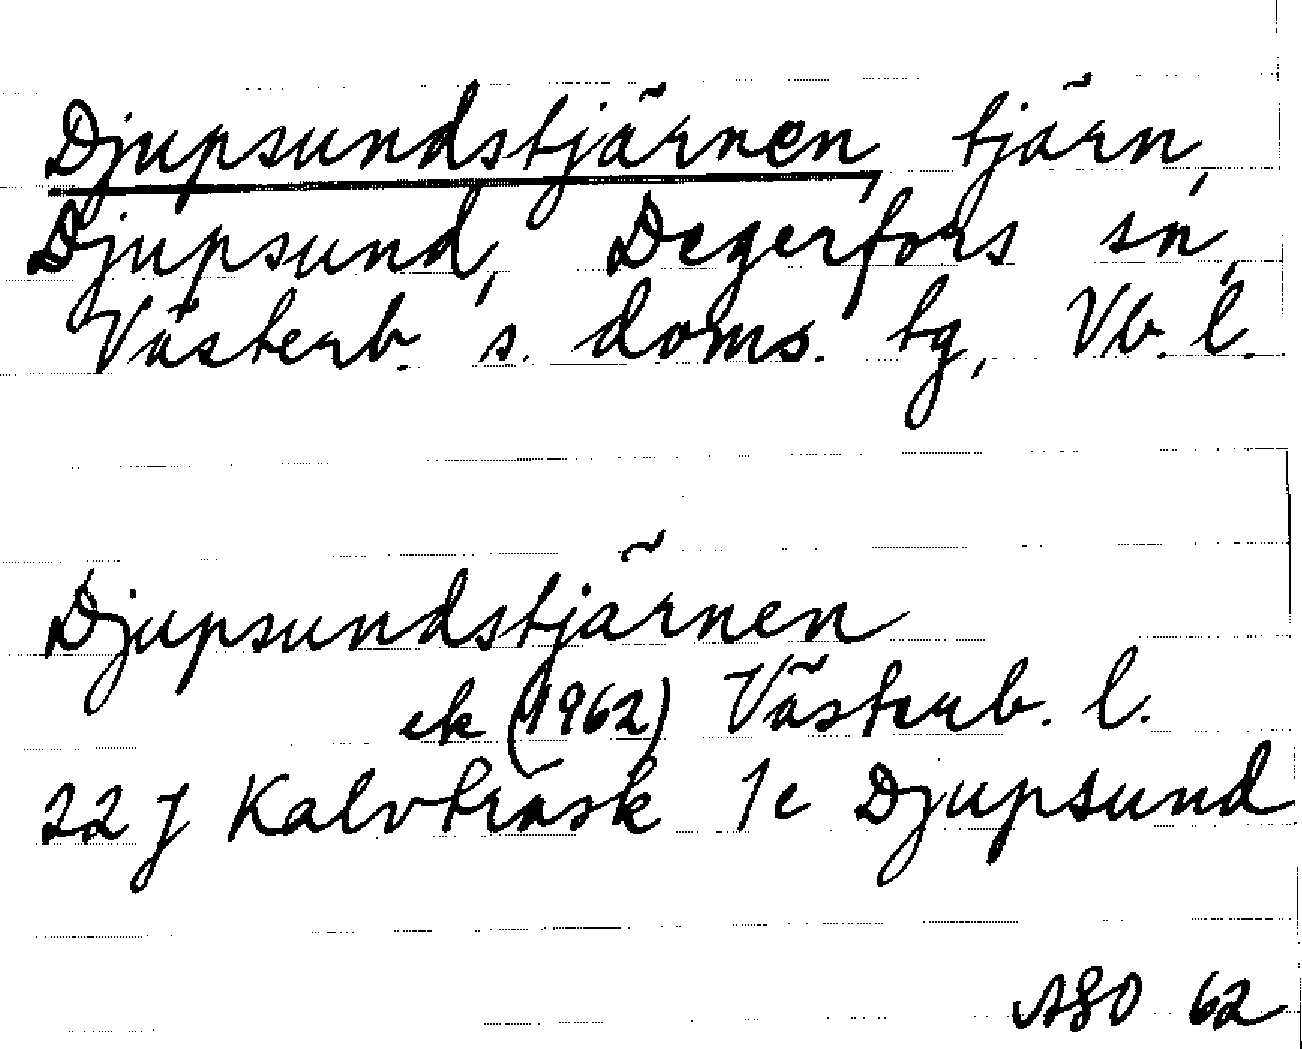 Djupsundstjärnen, tjärn,
Djupsund, Degerfors sn,
Västerb. s. doms. tg, Vb. l.
Djupsundstjärnen
ek (1962) Västerb. l.
22 J Kalvträsk 1c Djupsund
ASO 62